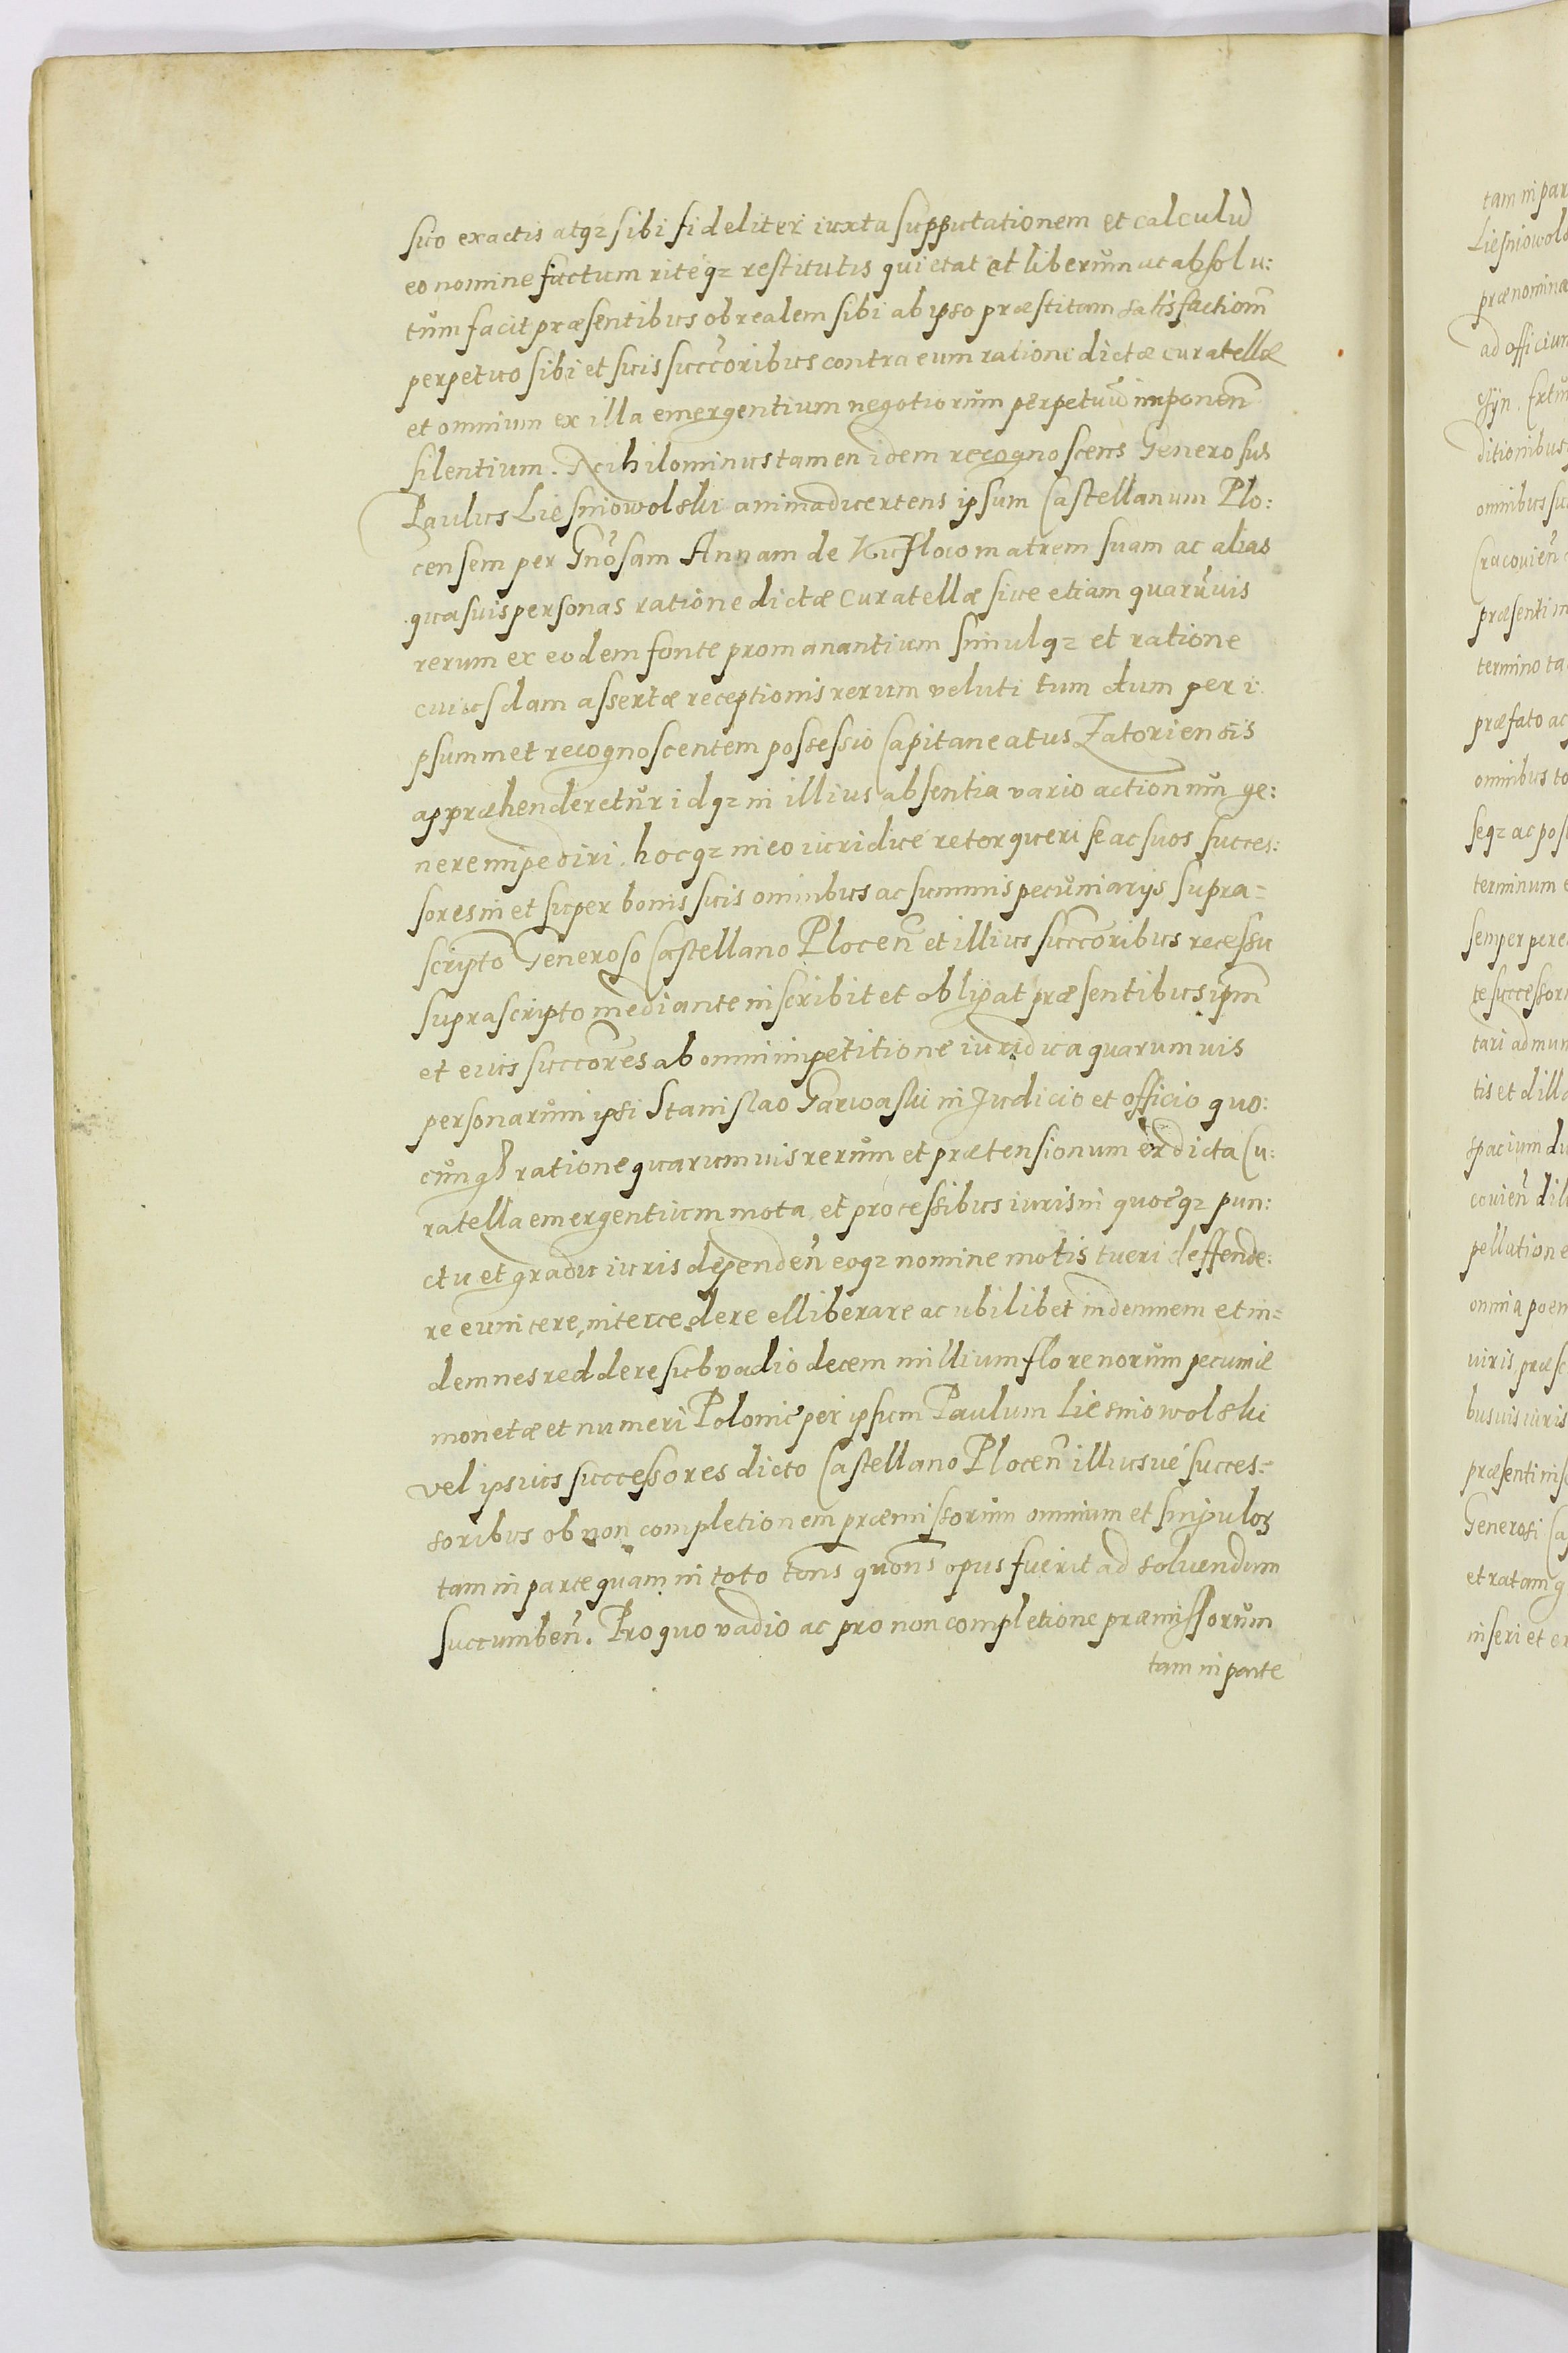 suo exactis atqz sibi fideliter iuxta supputationem et calculū
eo nomine factum ritéqz restitutis quietat et liberum ac absolu:
tum facit præsentibus ob realem sibi ab ipso præstitam satisfactiom̃
perpetuo sibi et suis succ̃oribus contra eum ratione dictæ curatellæ
et omnium ex illa emergentium negotiorum perpetuū imponen̄
silentium. Nihilominus tamen idem recognoscens Generosus
Paulus Liesniowolski animaduertens ipsum Castellanum Plo:
censem per Gn̄osam Annam de matrem suam ac alias
quasuis personas ratione dictæ curatellæ siue etiam quarūuis
rerum ex eodem fonte promanantium simulqz et ratione
cuiusdam assertæ receptionis rerum veluti tum dum per i
psummet recognoscentem possessio Capitaneatus Zatoriensis
appræhenderetur idqz in illius absentia vario actionum ge:
nere impediri. hocqz in eo iuridicé retorqueri se ac suos succes:
sores in et super bonis suis omnibus ac summis pecuniarijs supra=
scripto Generoso Castellano Plocen̄ et illius succ̃oribus recessu
suprascripto mediante inscribit et obligat præsentibus ipm̃
et eius succ̃ores ab omni impetitione iuridica quarumuis
personarum ipsi Stanislao Garwaski in Judicio et officio quo:
cunqꝫ ratione quarumuis rerum et prætensionum ex dicta Cu:
ratella emergentium mota et processibus iuris in quocqz pun:
ctu et gradu iuris dependen̄ eoqz nomine motis tueri deffende:
re euincere, intercedere elliberare ac ubilibet indemnem et in=
demnes reddere sub vadio decem millium florenorum pecuniæ
monetæ et numeri Polonic̃ per ipsum Paulum Liesniowolski
vel ipsius successores dicto Castellano Plocen̄ illiusué succes=
soribus ob non completionem præmissorum omnium et singuloꝝ
tam in parte quam in toto tōns quōns opus fuerit ad soluendum
succumben̄. Pro quo vadio ac pro non completione præmissorum
tam in parte
tam in par
Liesniowols
prænomina
ad officium
ditionibus
omnibus su
Cracouien̄
præsenti in
termino ta
præfato ac
omnibus to
seqz ac pos
terminum
semper pere
te successor
tari ad mun
tis et dill
spacium du
couien̄ dil
pellatione
omnia poen
uiris præs
busuis iuris
præsenti ins
Generosi Ca
et ratam g
inseri et